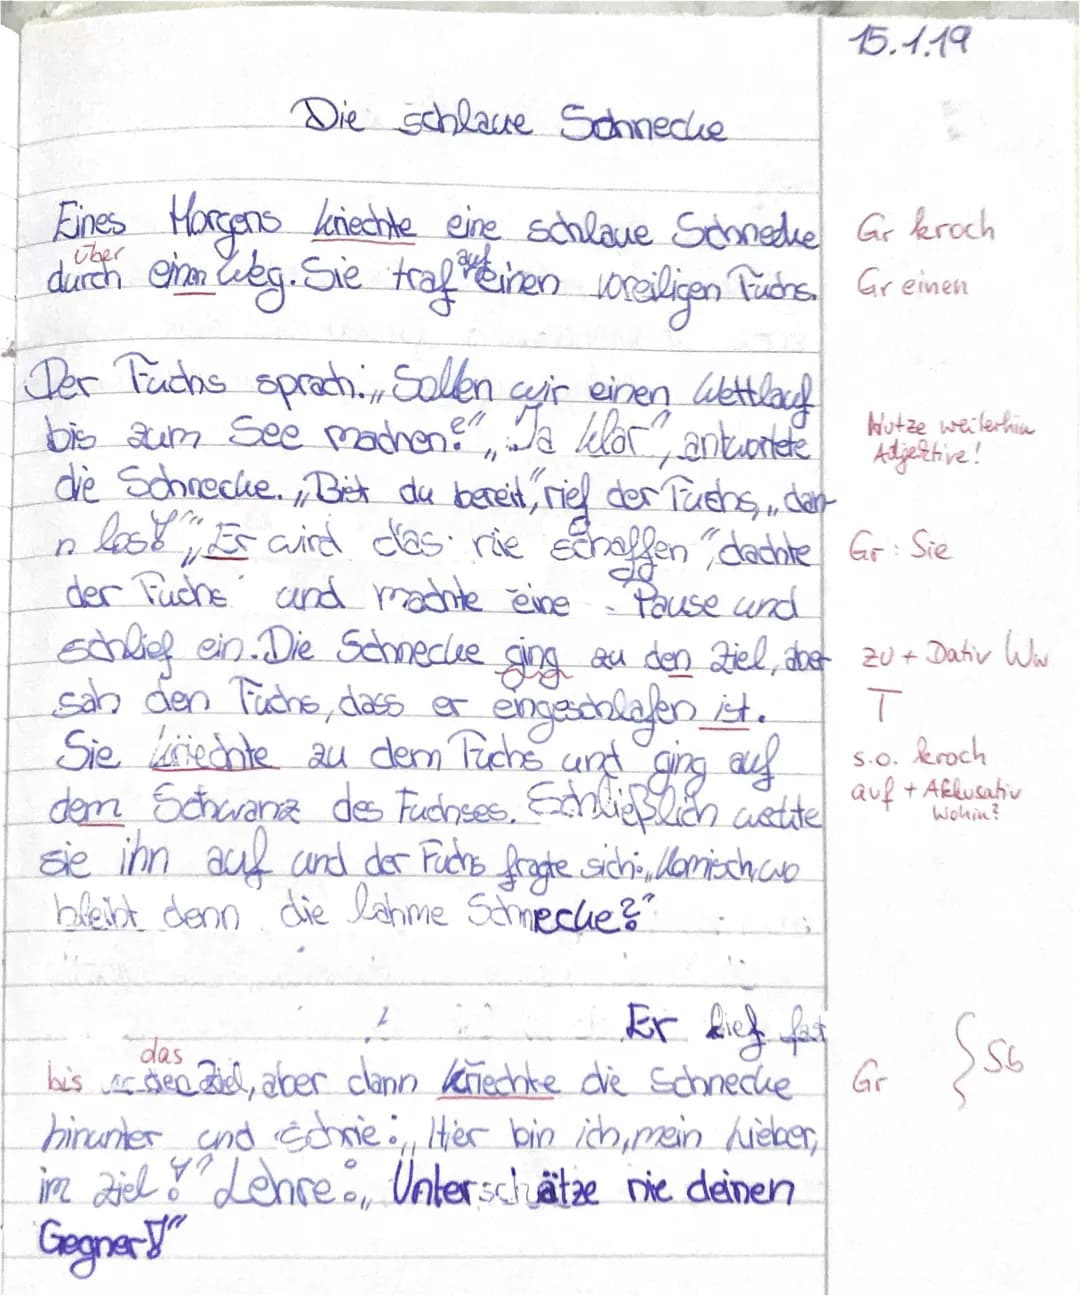 15.1.19
Die schlaue Schnecke
Eines Morgens kriechte eine schlaue Schnecke Gr kroch
über auf
durch einen Weg. Sie traf einen voreiligen Fuchs. Gr einen
Der Fuchs sprach: „Sollen wir einen Wettlauf
bis zum See machen?" „Ja klar", antwortete Nutze weiterhin
Adjektive!
die Schnecke. „Bist du bereit," rief der Fuchs, „dan-
n los!" „Er wird das nie schaffen" dachte Gr: Sie
der Fuchs und machte eine Pause und
schlief ein. Die Schnecke ging zu den Ziel, aber zu + Dativ Ww
sah den Fuchs, dass er engeschlafen ist. T
Sie kriechte zu dem Fuchs und ging auf s.o. kroch
dem Schwanz des Fuchses. Schließlich weckte auf + Akkusativ
Wohin?
sie ihn auf und der Fuchs fragte sich: „Komisch, wo
bleibt denn die lahme Schnecke?"
Er lief fast
das
bis den Ziel, aber dann kriechte die Schnecke Gr Sb
hinunter und schrie: „Hier bin ich, mein Lieber,
im Ziel!" Lehre: „Unterschätze nie deinen
Gegner!"